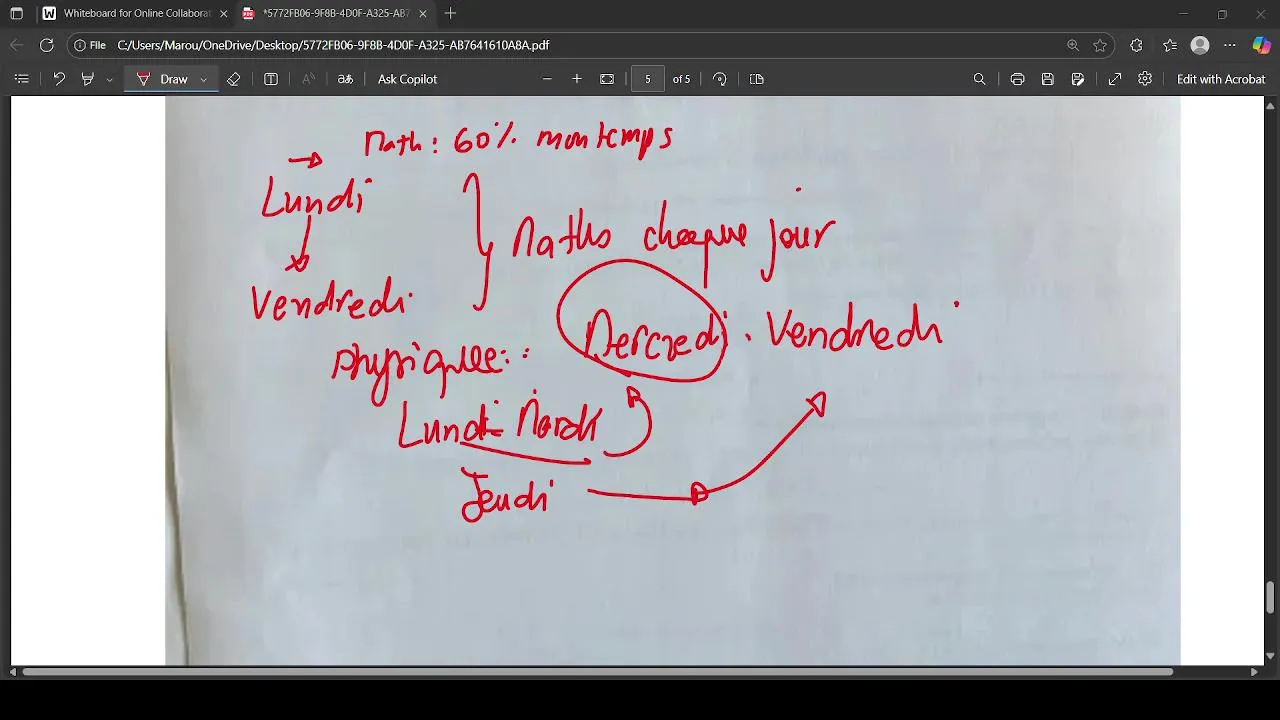 Whiteboard for Online Collaborat
*5772FB06-9F8B-4D0F-A325-AB7
File C:/Users/Marou/OneDrive/Desktop/5772FB06-9F8B-4D0F-A325-AB7641610A8A.pdf
Draw Ask Copilot 5 of 5 Edit with Acrobat
Math : 60% mon temps
Lundi
Maths chaque jour
Vendredi
Mercredi . Vendredi
physique :
Lundi Mardi
Jeudi